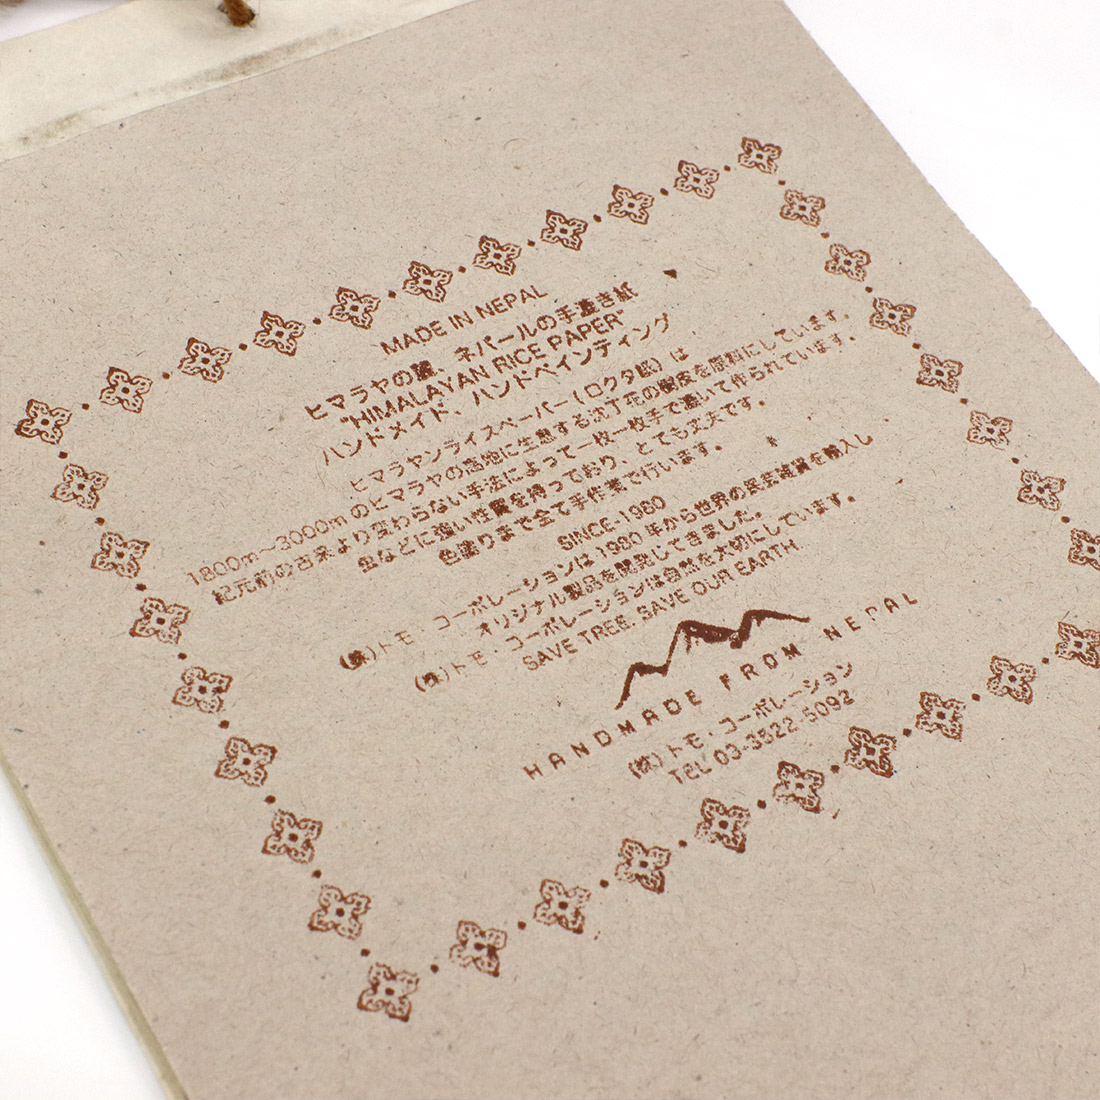 MADE IN NEPAL
ヒマラヤの麓、ネパールの手漉き紙
"HIMALAYAN RICE PAPER"
ハンドメイド、ハンドペインティング
ヒマラヤンライスペーパー（ロクタ紙）は
1800m～3000mのヒマラヤの高地に生息する沈丁花の樹皮を原料にしています。
紀元前の古来より変わらない手法によって一枚一枚手で漉いて作られています。
虫などに強い性質を持っており、とても丈夫です。
色塗りまで全て手作業で行います。
SINCE-1980
（株）トモ・コーポレーションは1980年から世界の民芸雑貨を輸入し
オリジナル製品を開発してきました。
（株）トモ・コーポレーションは自然を大切にしています。
SAVE TREE. SAVE OUR EARTH.
HANDMADE FROM NEPAL
（株）トモ・コーポレーション
TEL 03-3522-5092